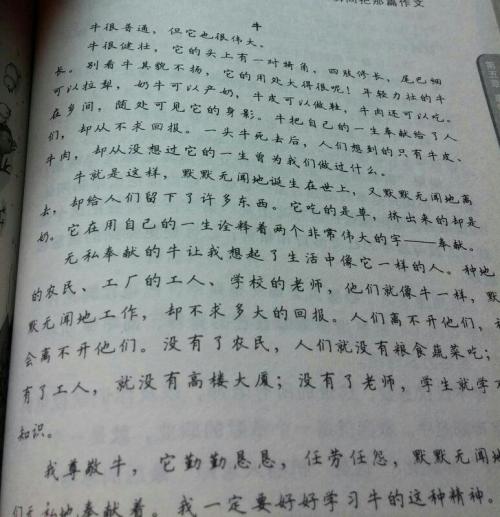 那篇作文
牛
牛很普通，但它也很伟大。
牛很健壮，它的头上有一对犄角，四肢修长，尾巴细
长。别看牛其貌不扬，它的用处大得很呢！年轻力壮的牛
可以拉犁，奶牛可以产奶，牛皮可以做鞋，牛肉还可以吃。
在乡间，随处可见它的身影。牛把自己的一生奉献给了人
们，却从不求回报。一头牛死去后，人们想到的只有牛皮、
牛肉，却从没想过它的一生曾为我们做过什么。
牛就是这样，默默无闻地诞生在世上，又默默无闻地离
去，却给人们留下了许多东西。它吃的是草，挤出来的却是
奶。它在用自己的一生诠释着两个非常伟大的字——奉献。
无私奉献的牛让我想起了生活中像它一样的人。种地
的农民、工厂的工人、学校的老师，他们就像牛一样，默
默无闻地工作，却不求多大的回报。人们离不开他们，
会离不开他们。没有了农民，人们就没有粮食蔬菜吃；
有了工人，就没有高楼大厦；没有了老师，学生就学
知识。
我尊敬牛，它勤勤恳恳，任劳任怨，默默无闻地
们无私地奉献着。我一定要好好学习牛的这种精神。